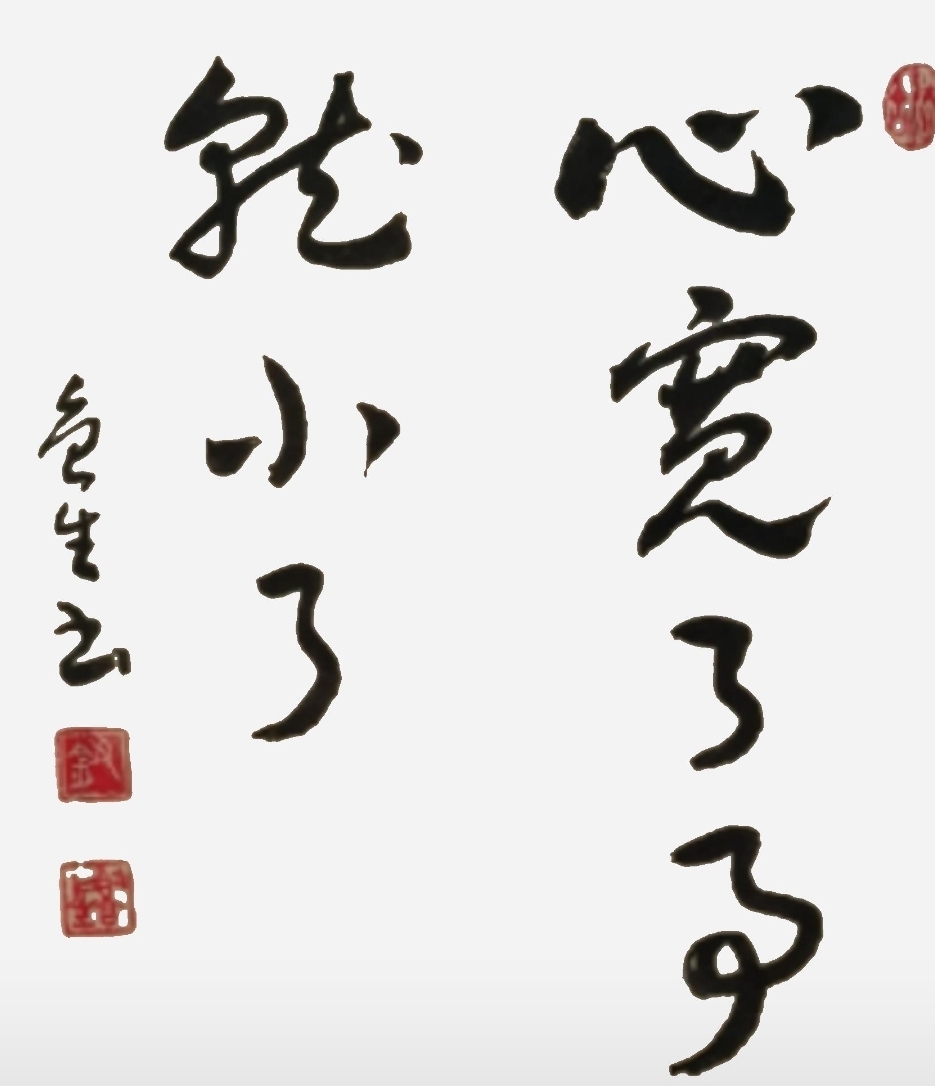 心宽了事
就小了
生书